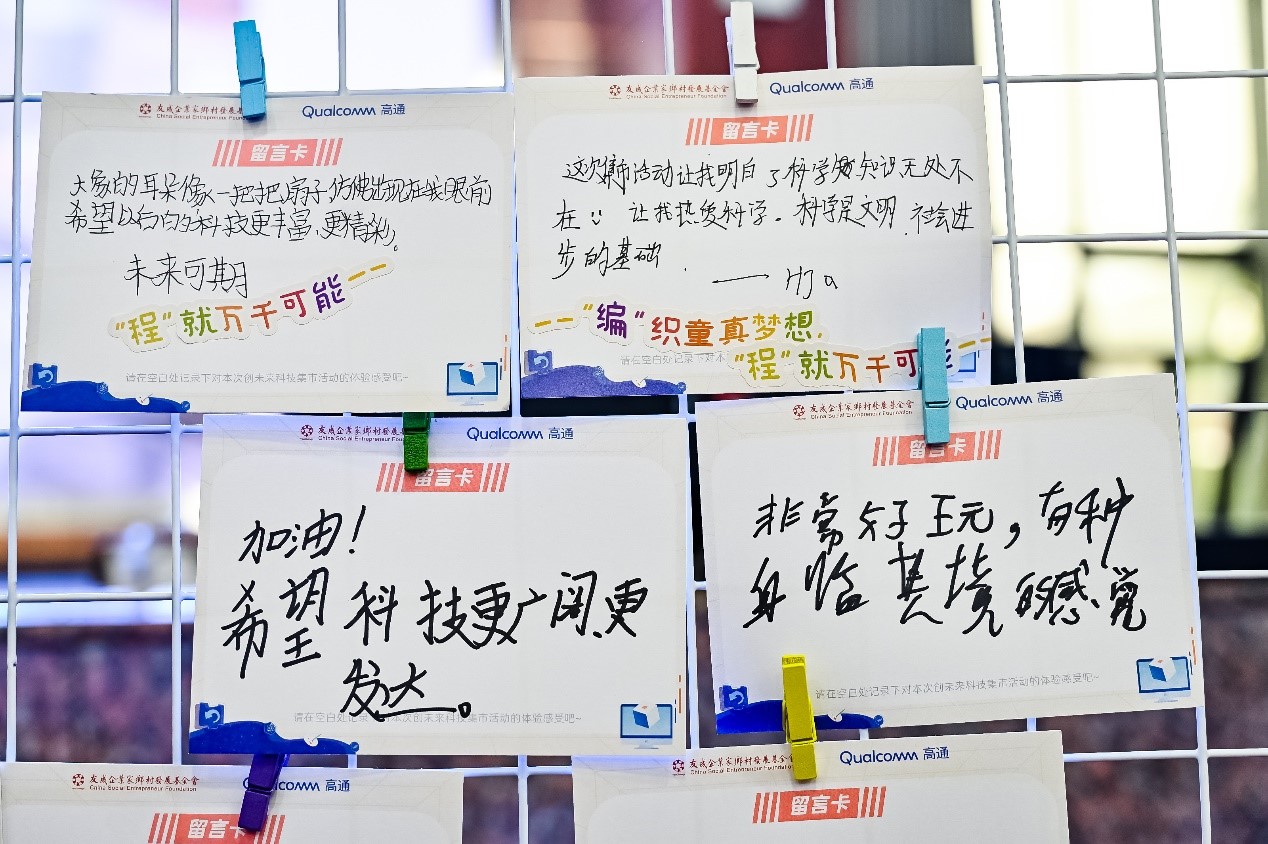 友成企業家鄉村發展基金會
China Social Entrepreneur Foun
Qualcomm 高通
留言卡
大象的耳朵像一把把扇子,仿佛出现在我眼前
希望以后的科技更丰富,更精彩。
未来可期
“程”就万千可能——
请在空白处记录下对本次创未来科技集市活动的体验感受吧~
友成企業家鄉村發展基金會
China Social Entrepreneur Foundation
Qualcomm 高通
留言卡
这次集市活动让我明白了科学知识无处不
在 让我热爱科学。科学是文明、社会进
步的基础
——“编”织童真梦想,
请在空白处记录下对本
“程”就万千可能——
友成企業家鄉村發展基
China Social Entrepreneur
Qualcomm 高通
留言卡
加油!
希望科技更广阔、更
发达。
请在空白处记录下对本次创未来科技集市活动的体验感受吧~
友成企業家鄉村發展基金會
China Social Entrepreneur Foundation
Qualcomm 高通
留言卡
非常好玩,有种
身临其境的感觉
请在空白处记录下对本次创未来科技集市活动的体验感受吧~
友成企業家鄉村發展基金會
China Social Entrepreneur Foundation
Qualcomm 高通
留言卡
友成企業家鄉村發展基金會
China Social Entrepreneur Foundation
Qualcomm 高通
留言卡